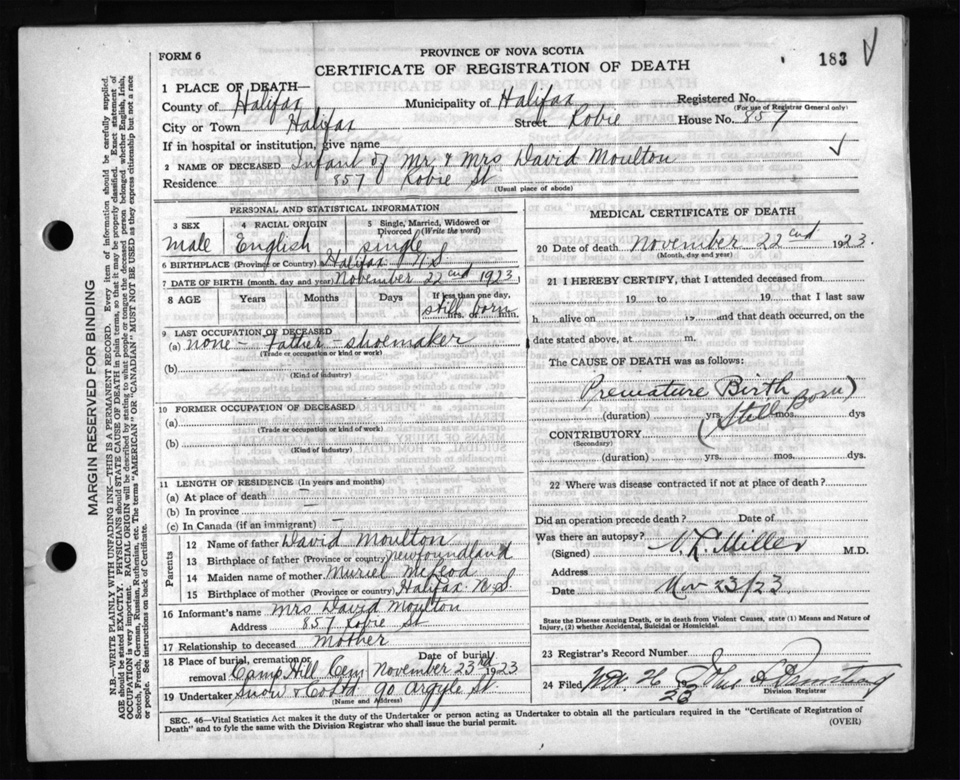 FORM 6
PROVINCE OF NOVA SCOTIA
CERTIFICATE OF REGISTRATION OF DEATH
183
1 PLACE OF DEATH—
County of Halifax Municipality of Halifax Registered No.
(For use of Registrar General only)
City or Town Halifax Street Robie House No. 857
If in hospital or institution, give name
2 NAME OF DECEASED Infant of Mr. & Mrs David Moulton
Residence 857 Robie St
(Usual place of abode)
PERSONAL AND STATISTICAL INFORMATION
3 SEX 4 RACIAL ORIGIN 5 Single, Married, Widowed or Divorced (Write the word)
male English single
6 BIRTHPLACE (Province or Country) Halifax N.S
7 DATE OF BIRTH (month, day and year) November 22nd 1923
8 AGE Years Months Days If less than one day,
still born hrs. or min.
9 LAST OCCUPATION OF DECEASED
(a) none - Father - shoemaker
(Trade or occupation or kind or work)
(b)
(Kind of industry)
10 FORMER OCCUPATION OF DECEASED
(a)
(Trade or occupation or kind or work)
(b)
(Kind of industry)
11 LENGTH OF RESIDENCE (In years and months)
(a) At place of death —
(b) In province —
(c) In Canada (if an immigrant) —
Parents
12 Name of father David Moulton
13 Birthplace of father (Province or country) Newfoundland
14 Maiden name of mother Muriel McLeod
15 Birthplace of mother (Province or country) Halifax N.S.
16 Informant's name Mrs David Moulton
Address 857 Robie St
17 Relationship to deceased Mother
18 Place of burial, cremation or removal Camp Hill Cem Date of burial November 23rd 1923
19 Undertaker Snow & Co Ltd 90 Argyle St.
(Name and Address)
MEDICAL CERTIFICATE OF DEATH
20 Date of death November 22nd 1923.
(Month, day and year)
21 I HEREBY CERTIFY, that I attended deceased from
19 to 19 that I last saw
h alive on 19 and that death occurred, on the
date stated above, at m.
The CAUSE OF DEATH was as follows:
Premature Birth
(Still Born)
(duration) yrs. mos. dys
CONTRIBUTORY
(Secondary)
(duration) yrs. mos. dys.
22 Where was disease contracted if not at place of death?
Did an operation precede death? Date of
Was there an autopsy?
(Signed) Miller M.D.
Address
Date Nov 23/23.
State the Disease causing Death, or in death from Violent Causes, state (1) Means and Nature of Injury, (2) whether Accidental, Suicidal or Homicidal.
23 Registrar's Record Number
24 Filed 26 23
Division Registrar
SEC. 46—Vital Statistics Act makes it the duty of the Undertaker or person acting as Undertaker to obtain all the particulars required in the "Certificate of Registration of
Death" and to fyle the same with the Division Registrar who shall issue the burial permit.
(OVER)
MARGIN RESERVED FOR BINDING
N.B.—WRITE PLAINLY WITH UNFADING INK—THIS IS A PERMANENT RECORD. Every item of information should be carefully supplied.
AGE should be stated EXACTLY. PHYSICIANS should STATE CAUSE OF DEATH in plain terms, so that it may be properly classified. Exact statement of
OCCUPATION is very important. RACIAL ORIGIN will be described by stating to what people or tongue the deceased person belonged whether English, Irish,
Scotch, French, German, Russian, Ruthenian, etc. The terms "AMERICAN" OR "CANADIAN" MUST NOT BE USED as they express citizenship but not a race
or people. See instructions on back of Certificate.